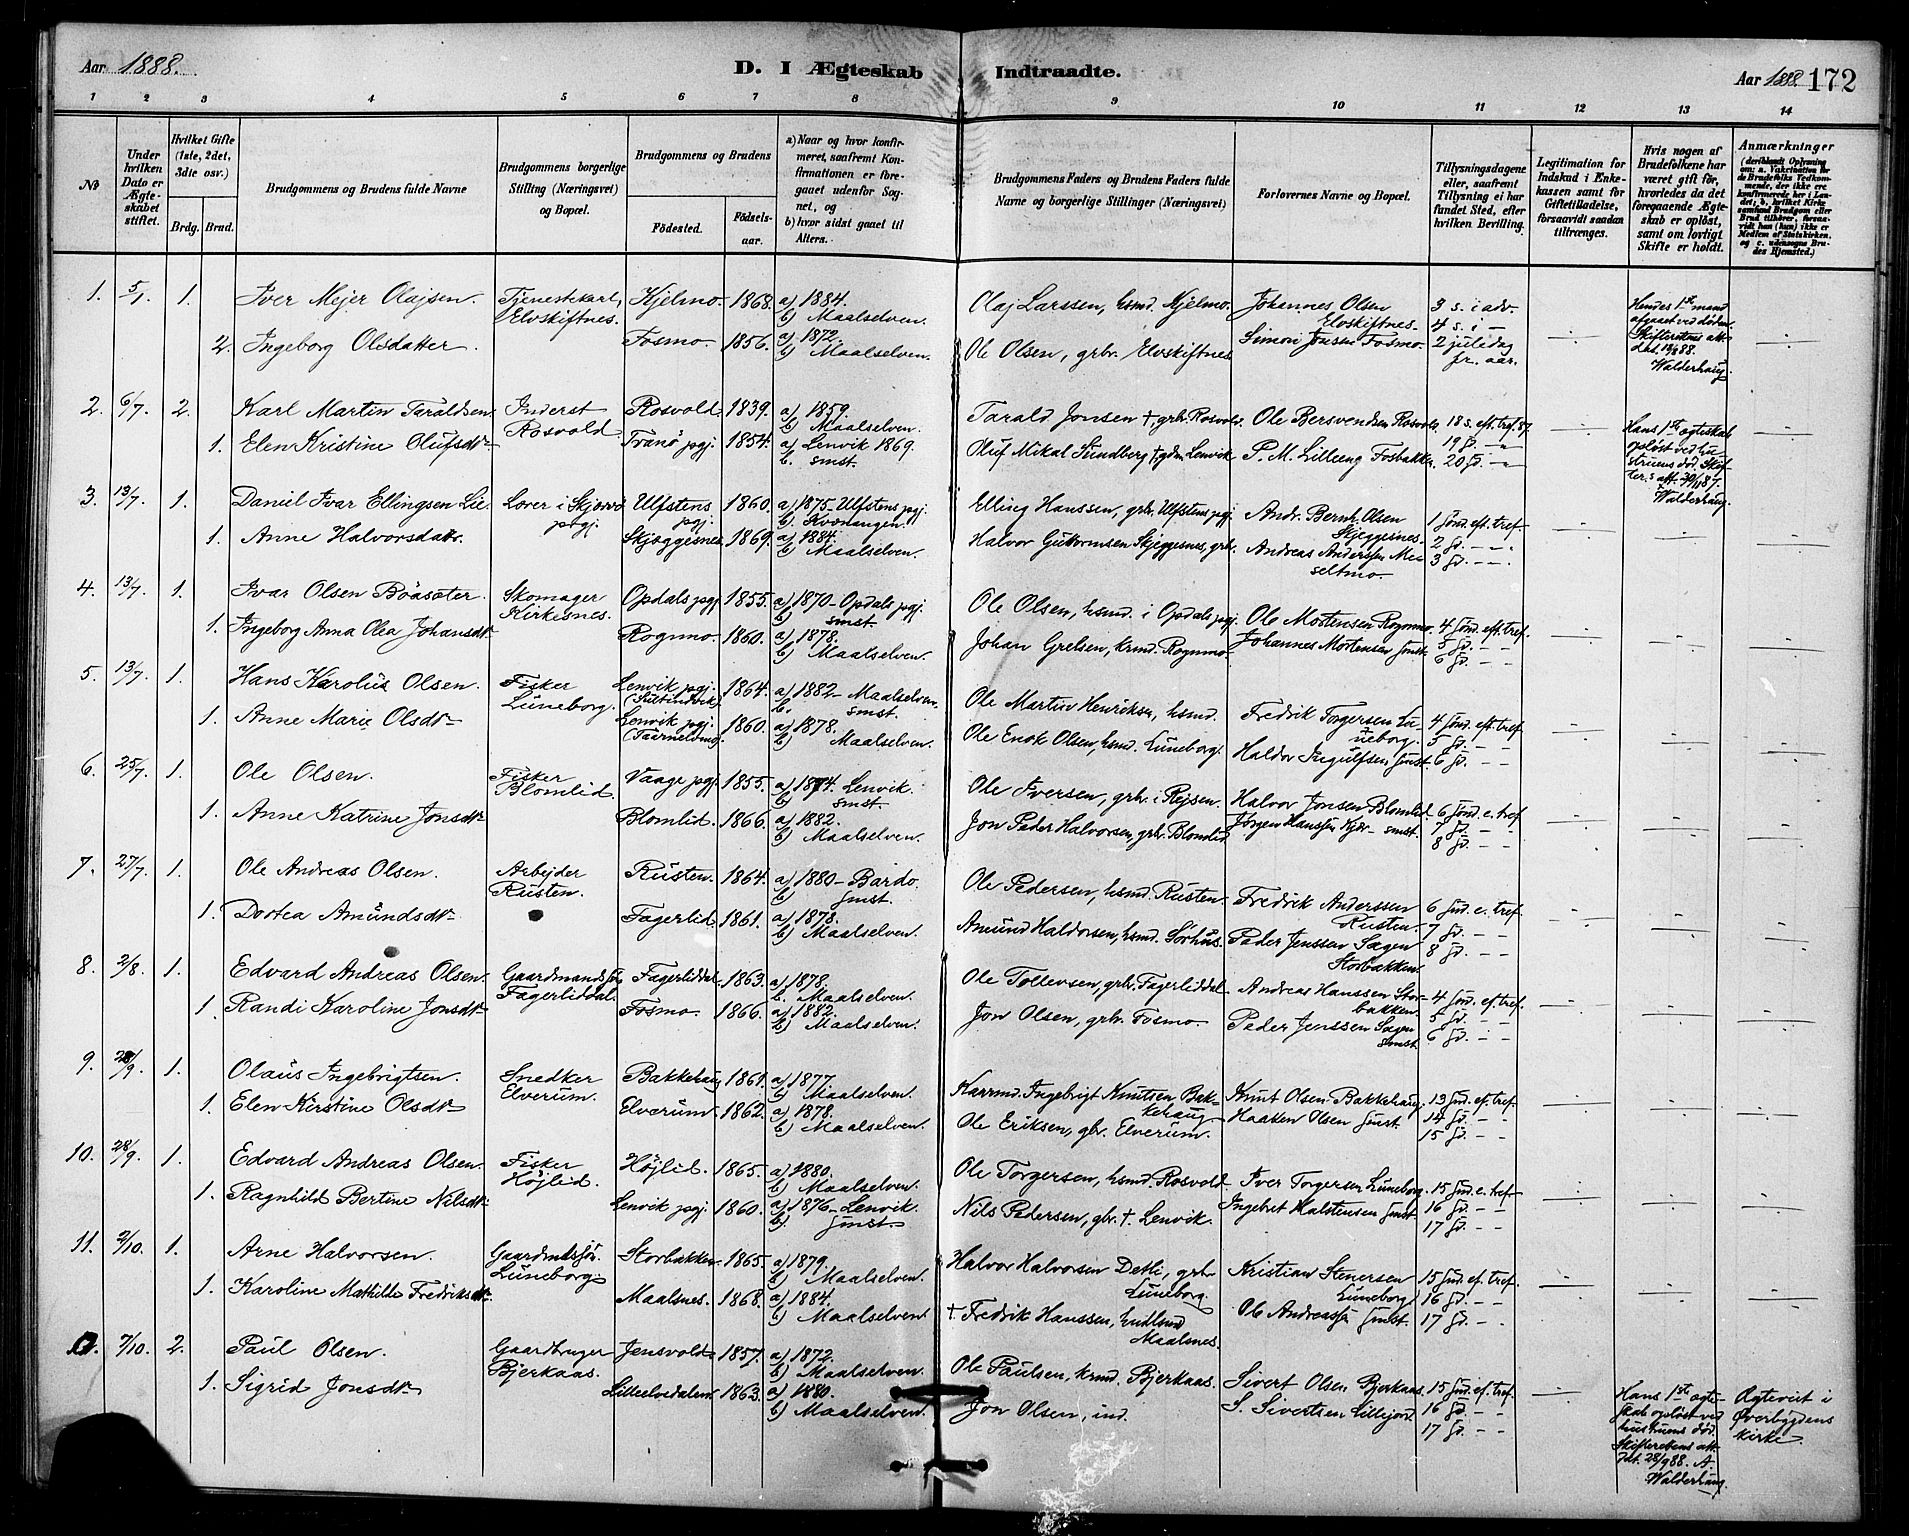 Aar 1888.
D. I Ægteskab Indtraadte.
Aar 1888. 172
1 2 3 4 5 6 7 8 9 10 11 12 13 14
No
Under hvilken Dato er Ægteskabet stiftet.
Hvilket Gifte (1ste, 2det, 3die osv.)
Brdg. Brud.
Brudgommens og Brudens fulde Navne
Brudgommens borgerlige Stilling (Næringsvei) og Bopæl.
Brudgommens og Brudens
Födested.
Födselsaar.
a) Naar og hvor konfirmeret, saafremt Konfirmationen er foregaaet udenfor Sognet, og
b) hvor sidst gaaet til Alters.
Brudgommens Faders og Brudens Faders fulde Navne og borgerlige Stillinger (Næringsvei)
Forlovernes Navne og Bopæl.
Tillysningsdagene eller, saafremt Tillysning ei har fundet Sted, efter hvilken Bevilling.
Legitimation for Indskud i Enkekassen samt for Giftetilladelse, forsaavidt saadan tiltrænges.
Hvis nogen af Brudefolkene har været gift för, hvorledes da det foregaaende Ægteskab er oplöst, samt om lovligt Skifte er holdt.
Anmærkninger
1. 5/1. 1. Iver Mejer Olajsen. Tjenestekarl, Elvskiftnes. Hjelmo. 1868. a) 1884. b) Maalselven. Olaj Larssen, hsmd. Hjelmo. Johannes Olsen Elvskiftnes. 3 s. i adv.
4 s. i -
2. Ingeborg Olsdatter. Fosmo. 1856. a) 1872. b) Maalselven. Ole Olsen, grbr. Elvskiftnes. Simon Jensen Fosmo. 2 juledag fr. aar.
Hendes 1ste mand afgaaet ved døden. Skifterettens att. Walderhaug.
2. 6/7. 2. Karl Martin Taraldsen Inderst Rosvold Rosvold. 1839. a) 1859. b) Maalselven. Tarald Jonsen †, grbr. Rosvold. Ole Bersvendsen Rosvold. 18 s. eft. tref. 87.
1. Elen Kristine Olufsdtr Tranö pgj. 1854. a) Lenvik 1869. b. smst. Oluf Mikal Sundberg †, gdm. Lenvik P. M. Lilleeng Fosbakke. 19 sd. - -
20 sd. - -
Hans 1ste ægteskab opløst ved hustruens död. Skifter.s att. Walderhaug.
3. 13/7. 1. Daniel Ivar Ellingsen Lie Lærer i Skjervö pgj. Ulfstens pgj. 1860. a) 1875 - Ulfstens pgj. b. Kvænangen. Elling Hanssen, grbr. Ulfstens pgj. Andr. Bernh. Olsen Skjeggesnes. 1 sönd. eft. tref.
1. Anne Halvorsdatr. Skjæggesnes. 1869. a) 1884. b) Maalselven. Halvor Guttormsen Skjeggesnes, grbr. Andreas Andersen Meseltmo. 2 sd. - -
3 sd. - -
4. 13/7. 1. Ivar Olsen Böasæter. Skomager Kirkesnes. Opdals pgj. 1855. a) 1870 - Opdals pgj. b) smst. Ole Olsen, hsmd. i Opdals pgj. Ole Mortensen Rognmo. 4 sönd. eft. tref.
1. Ingeborg Anna Olea Johansdtr Rognmo. 1860. a) 1878. b) Maalselven. Johan Grelsen, krmd. Rognmo. Johannes Mortensen smst. 5 sd. - -
6 sd. - -
5. 13/7. 1. Hans Karolius Olsen. Fisker Luneborg. Lenvik pgj. 1864. a) 1882 - Maalselven. b. smst. Ole Martin Henriksen, hsmd. Fredrik Torgersen Luneborg. 4 sönd. eft. tref.
1. Anne Marie Olsdtr Lenvik pgj. 1860. a) 1878. b) Maalselven. Ole Enok Olsen, hsmd. Luneborg. Haldor Ingulfsen smst. 5 sd. - -
6 sd. - -
6. 25/7. 1. Ole Olsen. Fisker Blomlid. Vaage pgj. 1855. a) 1874. Lenvik. b) smst. Ole Iversen, grbr. i Rejsen. Halvor Jonsen Blomlid 6 sönd. e. tref.
1. Anne Katrine Jonsdtr Blomlid. 1866. a) 1882. b) Maalselven. Jon Peder Halvorsen, grbr. Blomlid. Jørgen Hanssen Kjær - smst. 7 sd. - -
8 sd. - -
7. 27/7. 1. Ole Andreas Olsen. Arbejder Rusten. Rusten. 1864. a) 1880 - Bardo. b) smst. Ole Pedersen, hsmd. Rusten. Fredrik Anderssen Rusten. 6 sönd. e. tref.
1. Dortea Amundsdtr Fagerlid. 1861. a) 1878. b) Maalselven. Amund Haldorsen, hsmd. Sorhus. Peder Jenssen Sagen Storbakken. 7 sd. - -
8 sd. - -
8. 2/8. 1. Edvard Andreas Olsen. Gaardmandssøn Fagerliddal. Fagerliddal. 1863. a) 1878. b. Maalselven. Ole Tollevsen, grbr. Fagerliddal. Andreas Hanssen Storbakken. 4 sönd. ef. tref.
1. Randi Karoline Jonsdtr Fosmo. 1866. a) 1882. b) Maalselven. Jon Olsen, grbr. Fosmo. Peder Jenssen Sagen smst. 5 sd. - -
6 sd. - -
9. 28/9. 1. Olaus Ingebrigtsen. Snedker Elverum. Bakkehaug 1861. a) 1877. b) Maalselven. Karmd. Ingebrigt Knutsen Bakkehaug Knut Olsen Bakkehaug. 13 sönd. ef. tref.
1. Elen Kirstine Olsdtr Elverum. 1862. a) 1878. b) Maalselven. Ole Eriksen, gbr. Elverum. Haaken Olsen smst. 14 sd. - -
15 sd. - -
10. 28/9. 1. Edvard Andreas Olsen. Fisker Höjlid. Höjlid. 1865. a) 1880. b) Maalselven. Ole Torgersen, hsmd. Rosvold Iver Torgersen Luneborg. 15 sönd. e. tref.
1. Ragnhild Bertine Nilsdtr Lenvik pgj. 1860. a) 1876 - Lenvik. b) smst. Nils Pedersen, gbr. †. Lenvik. Ingebret Halstensen smst. 16 sd. - -
17 sd. - -
11. 2/10. 1. Arne Halvorsen. Gaardmdssön. Luneborg Storbakken. 1865. a) 1879. b) Maalselven. Halvor Halvorsen Detli, grbr Luneborg. Kristian Stenersen Luneborg. 15 sönd. ef. tref.
1. Karoline Mathilde Fredriksdtr. Maalsnes. 1868. a) 1884. b) Maalselven. † Fredrik Hanssen, Maalsnes. Ole Andreassen smst. 16 sd. - -
17 sd. - -
7/10. 2. Paul Olsen. Gaardbruger Bjerkaas. Jensvold. 1857. a) 1872. b) Maalselven. Ole Paulsen, krmd. Bjerkaas. Sivert Olsen Bjerkaas. 15 sönd. ef. tref.
1. Sigrid Jonsdtr Lilleelvedalen. 1863. a) 1880. b) Maalselven. Jon Olsen, ind. S. Sivertsen Lillejord. 16 sd. - -
17 sd. - -
Hans 1ste ægteskab opløst ved hustruens död. Skifterettens att. dat. 28/9 88. A. Walderhaug.
Ægteviet i Øverbygdens kirke.